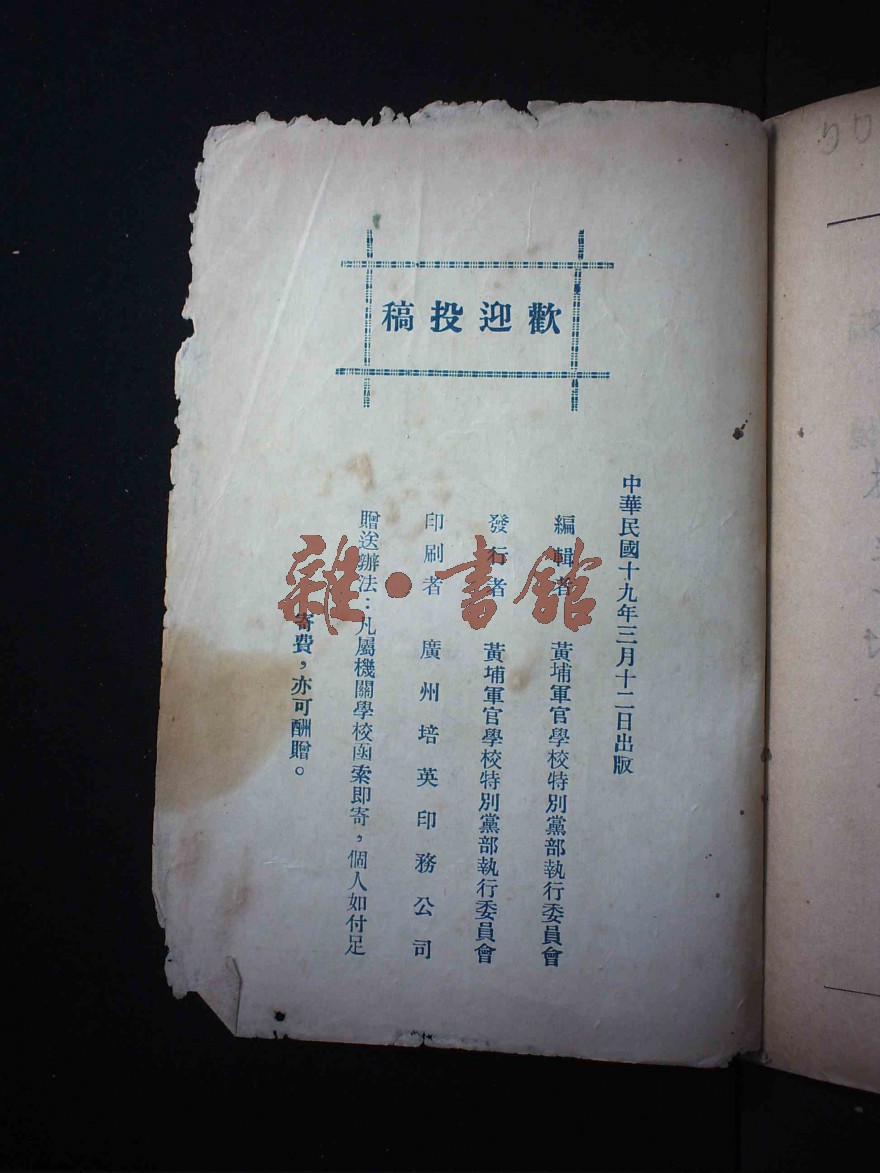 歡迎投稿
中華民國十九年三月十二日出版
編輯者 黃埔軍官學校特別黨部執行委員會
發行者 黃埔軍官學校特別黨部執行委員會
印刷者 廣州培英印務公司
贈送辦法：凡屬機關學校函索即寄，個人如付足
寄費，亦可酬贈。
雜·書館